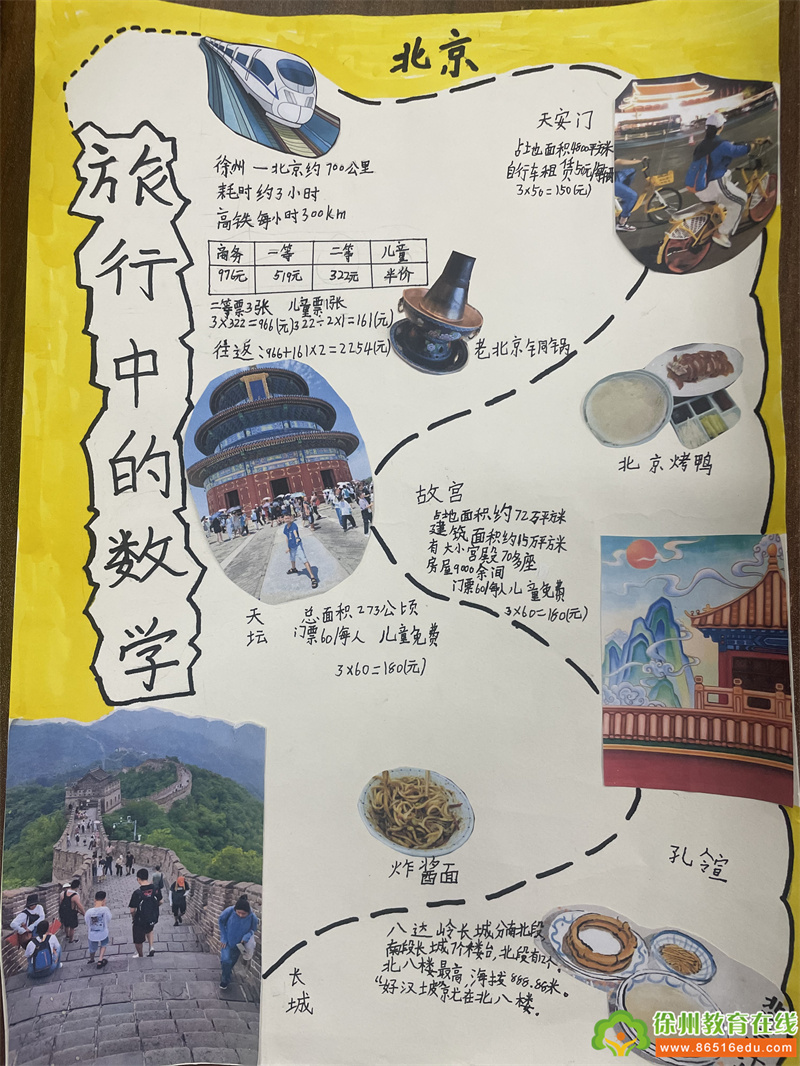 北京
旅行中的数学
徐州—北京约700公里
耗时约3小时
高铁每小时300km
商务 一等 二等 儿童
976元 519元 322元 半价
二等票3张 儿童票1张
3×322=966(元)322÷2×1=161(元)
往返:966+161×2=2254(元)
天安门
占地面积4800平方米
自行车租赁50元/每辆
3×50=150(元)
老北京铜锅
北京烤鸭
故宫
占地面积约72万平方米
建筑面积约15万平方米
有大小宫殿70多座
房屋9000余间
门票60/每人儿童免费
3×60=180(元)
天坛
总面积273公顷
门票60/每人 儿童免费
3×60=180(元)
炸酱面
孔令萱
八达岭长城分南北段
南段长城7个楼台,北段有12个。
北八楼最高,海拔888.86米。
"好汉坡"就在北八楼。
长城
北
徐州教育在线
www.86516edu.com